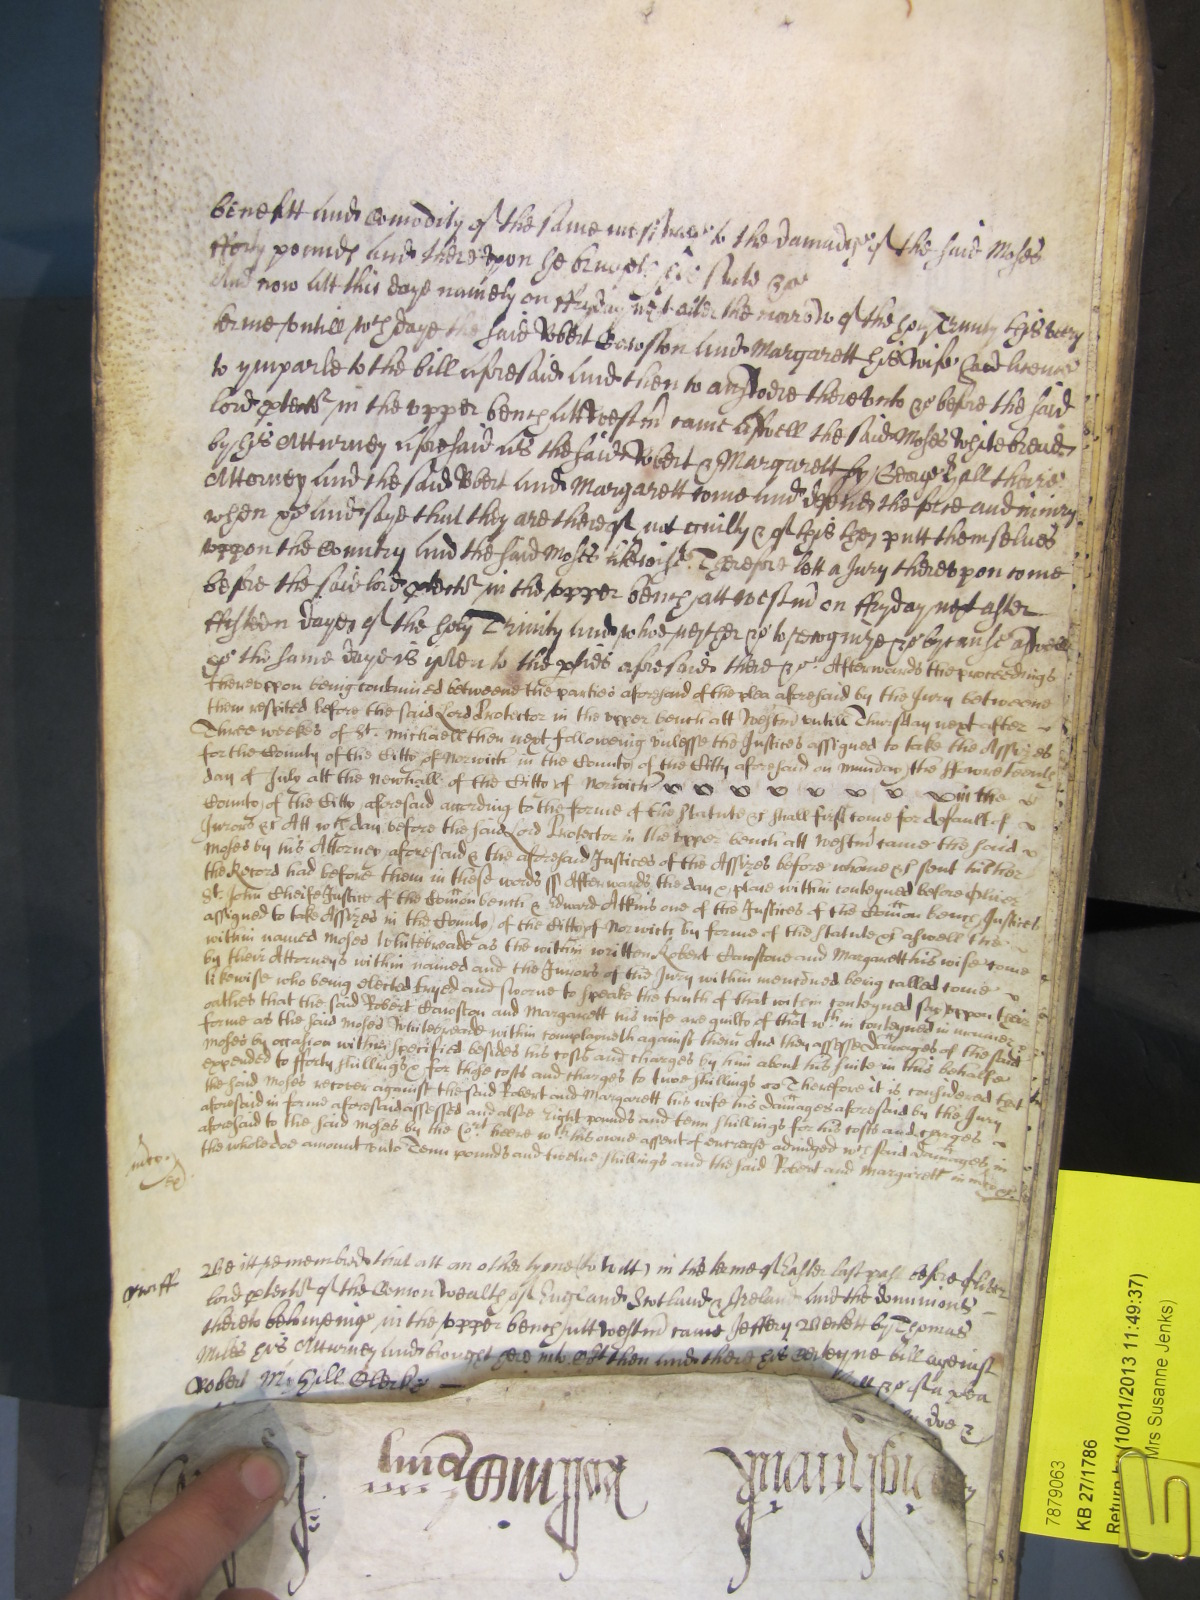 benefitt and Comodity of the same to the damadge of the said Moses
fforty pounds and thereupon he bringeth his suite &c
And now att this daye namely on ffryday next after the morrow of the holy Trinity this very
terme untill wch daye the said Robert Cowston and Margarett his wife had licence
to ymparle to the bill aforesaid and then to answere thereunto &c before the said
lord ptector in the upper bench att westm came aswell the said Moses Whitebreade
by his Atturney aforesaid as the said Robert & Margarett by George Hall theire
Attorney and the said Robert and Margarett come and defend the force and iniury
when &c and saye that they are thereof not guilty & of this they putt themselues
uppon the Country and the said Moses likewise Therefore lett a Jury thereupon come
before the said lord ptector in the upper bench att westm on ffryday next after
ffifteen dayes of the holy Trinity and who neyther &c to recognize &c because aswell
&c the same daye is given to the pties aforesaid there &c Afterwards the proceedings
thereuppon being continued betweene the parties aforesaid of the plea aforesaid by the Jury betweene
them respited before the said Lord Protector in the upper bench att Westm untill Thursday next after
Three weekes of St. Michaell then next following unlesse the Justices assigned to take the Assizes
for the County of the Citty of Norwich in the County of the Citty aforesaid on munday the
day of July att the Newhall of the Citty of Norwich in the
County of the Citty aforesaid according to the forme of the Statute &c shall first come for default of
Jurors &c Att wch day before the said Lord Protector in the upper bench att Westm came the said
Moses by his Attorney aforesaid & the aforesaid Justices of the Assizes before whome &c sent hither
the Record had before them in these words ss Afterwards the day & place within conteyned before Oliver
St. John Cheife Justice of the Comon bench & Edward Atkins one of the Justices of the Comon bench Justices
assigned to take Assizes in the County of the Citty of Norwich by forme of the Statute &c aswell the
within named Moses Whitebreade as the within written Robert Cowstone and Margarett his wife come
by their Attorneys within named and the Jurors of the Jury within menconed being called come
likewise who being elected tryed and sworne to speake the truth of that within conteyned say uppon their
oathes that the said Robert Cowston and Margarett his wife are guilty of that wthin conteyned in manner &
forme as the said Moses Whitebreade within complayneth against them And they assesse damages of the said
Moses by occasion within specified besides his costs and charges by him about his suite in this behalfe
expended to fforty shillings & for those costs and charges to twoe shillings Therefore it is considered that
the said Moses recover against the said Robert and Margarett his wife his damages aforesaid by the Jury
aforesaid in forme aforesaid assessed and alsoe Eight pounds and tenn shillings for his costs and charges
aforesaid to the said Moses by the Court heere wth his owne assent of encrease adiudged wch said damages in
the whole doe amount unto Tenn pounds and twelve shillings and the said Robert and Margarett in mercy &c
Be itt remembred that att an other tyme (to witt) in the terme of Easter last past before Oliver
lord ptector of the Comon Wealth of England Scotland & Ireland and the dominions
thereto belonginge in the upper bench att westm came Jeffery Beckett by Thomas
his Atturney and brought here into Court then and there his certeyne bill against
Robert Clerke of a plea
7879063
KB 27/1786
Return by (10/01/2013 11:49:37)
Mrs Susanne Jenks)